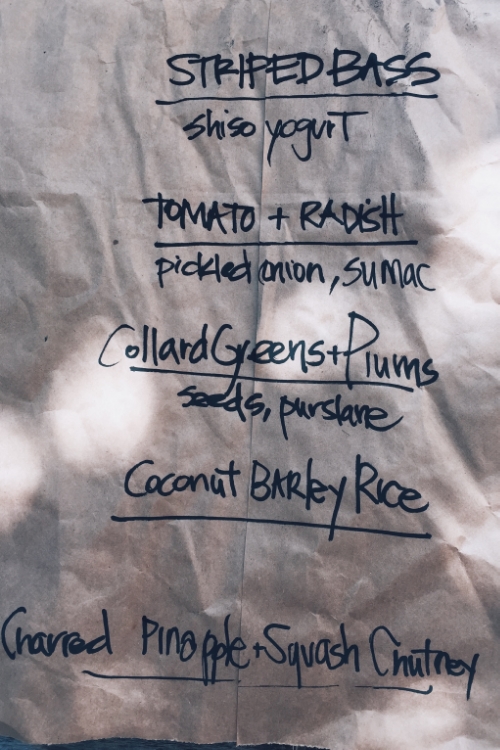 STRIPED BASS
shiso yogurT
TOMATO + RADiSH
pickled onion, SUMAC
Collard Greens + Plums
seeds, purslane
Coconut BARley Rice
Charred Pineapple + Squash Chutney